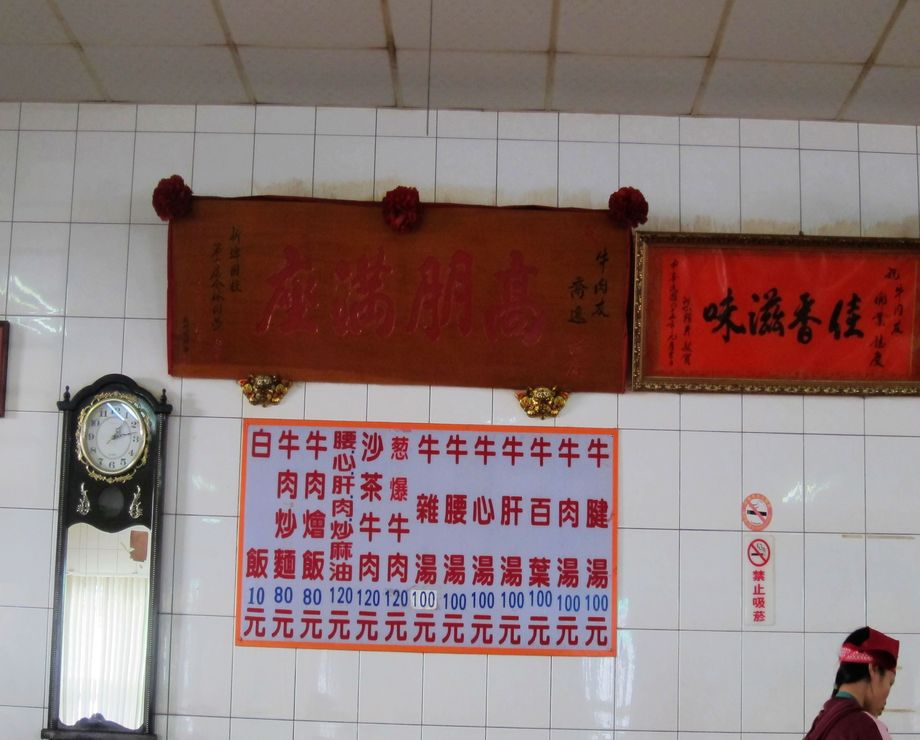 高朋滿座
牛肉友
喬遷
佳香滋味
祝牛肉友
開業誌慶
牛腱湯100元
牛肉湯100元
牛百葉100元
牛肝湯100元
牛心湯100元
牛腰湯100元
牛雜湯100元
葱爆牛肉120元
沙茶牛肉120元
腰.心.肝.肉.炒麻油120元
牛肉燴飯80元
牛肉炒麵80元
白飯10元
禁止吸菸